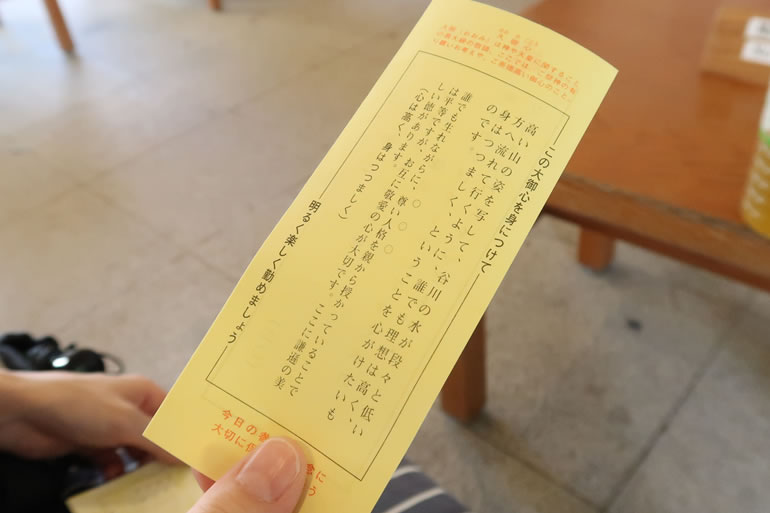 大御心
この大御心を身につけて
高い山の姿を写して、谷川の水が段々と低い
方へ流れて行くように、誰でも理想は高く、
身はつつましく、ということを心がけたいも
のです。
誰でも生れながらに、尊い人格を親から授かっていることで
は平等ですが、お互に敬愛の心が大切です。ここに謙遜の美
しい徳があります。
(心は高く、身はつつましく)
明るく楽しく勤めましょう
今日の
大切に